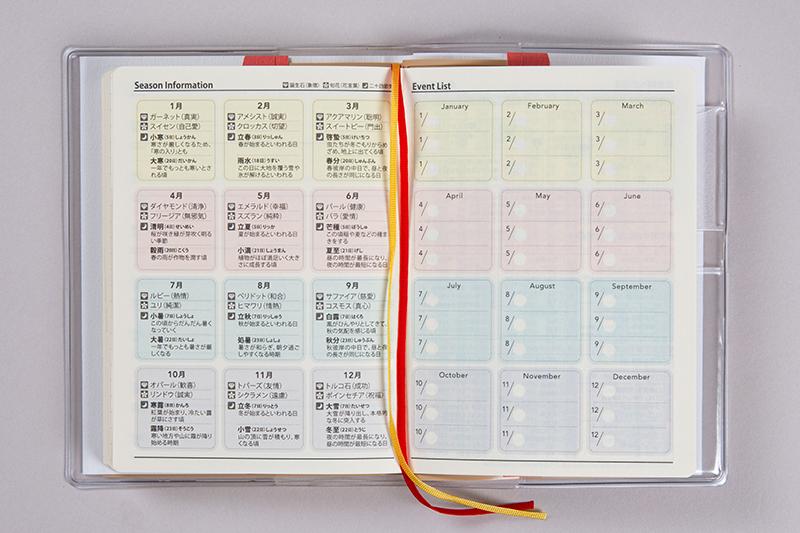 Season Information
誕生石(象徴) 旬花(花言葉) 二十四節
1月
ガーネット(真実)
スイセン(自己愛)
小寒(5日)しょうかん
寒さが厳しくなるため、
「寒の入り」とも
大寒(20日)だいかん
一年でもっとも寒いとさ
れる頃
2月
アメシスト(誠実)
クロッカス(切望)
立春(4日)りっしゅん
春が始まるといわれる日
雨水(18日)うすい
この日に大地を覆う雪や
氷が解けるといわれる
3月
アクアマリン(聡明)
スイートピー(門出)
啓蟄(5日)けいちつ
虫たちが冬ごもりからめ
ざめ、地上に出てくる頃
春分(20日)しゅんぶん
春彼岸の中日で、昼と夜
の長さが同じになる日
4月
ダイヤモンド(清浄)
フリージア(無邪気)
清明(4日)せいめい
桜が咲き緑が芽吹く明る
い季節
穀雨(20日)こくう
春の雨が作物を潤す頃
5月
エメラルド(幸福)
スズラン(純粋)
立夏(5日)りっか
夏が始まるといわれる日
小満(21日)しょうまん
植物がほぼ満足いく大き
さに成長する頃
6月
パール(健康)
バラ(愛情)
芒種(5日)ぼうしゅ
この頃稲や麦などの種ま
きをする
夏至(21日)げし
昼の時間が最長になり、
夜の時間が最短になる日
7月
ルビー(熱情)
ユリ(純潔)
小暑(7日)しょうしょ
この頃からだんだん暑く
なっていく
大暑(22日)たいしょ
一年でもっとも暑さが厳
しくなる
8月
ペリドット(和合)
ヒマワリ(情熱)
立秋(7日)りっしゅう
秋が始まるといわれる日
処暑(23日)しょしょ
暑さが和らぎ、朝夕過ご
しやすくなる時期
9月
サファイア(慈愛)
コスモス(真心)
白露(7日)はくろ
風がひんやりとしてきて、
秋の気配を感じる頃
秋分(23日)しゅうぶん
秋彼岸の中日で、昼と夜
の長さが同じになる日
10月
オパール(歓喜)
リンドウ(誠実)
寒露(8日)かんろ
紅葉が始まり、冷たい露
が草にさす頃
霜降(23日)そうこう
寒い地方や山に霜が降り
始める時期
11月
トパーズ(友情)
シクラメン(遠慮)
立冬(7日)りっとう
冬が始まるといわれる日
小雪(22日)しょうせつ
山の頂に雪が積もり、寒
くなる頃
12月
トルコ石(成功)
ポインセチア(祝福)
大雪(7日)たいせつ
大雪が降り出し、本格的
な冬に突入する
冬至(22日)とうじ
夜の時間が最長になり、
昼の時間が最短になる日
Event List
January
1/
1/
1/
February
2/
2/
2/
March
3/
3/
3/
April
4/
4/
4/
May
5/
5/
5/
June
6/
6/
6/
July
7/
7/
7/
August
8/
8/
8/
September
9/
9/
9/
October
10/
10/
10/
November
11/
11/
11/
December
12/
12/
12/